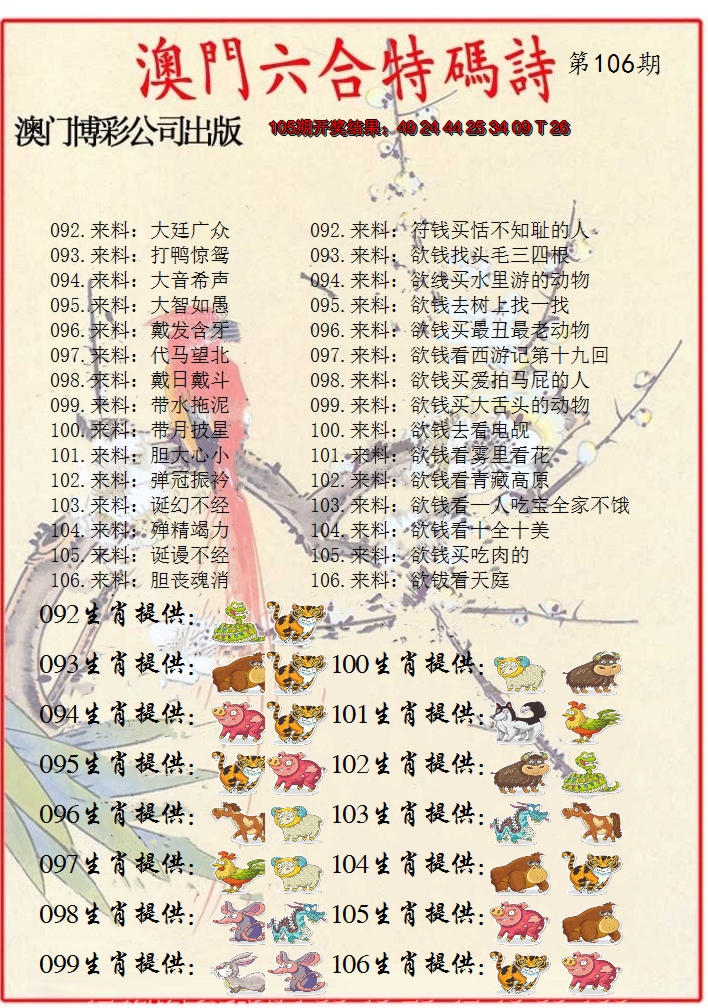 澳門六合特碼詩 第106期
澳门博彩公司出版 105期开奖结果：49 24 44 25 34 09 T 26
092.来料：大廷广众 092.来料：符钱买恬不知耻的人
093.来料：打鸭惊鸳 093.来料：欲钱找头毛三四根
094.来料：大音希声 094.来料：欲线买水里游的动物
095.来料：大智如愚 095.来料：欲钱去树上找一找
096.来料：戴发含牙 096.来料：欲钱买最丑最老动物
097.来料：代马望北 097.来料：欲钱看西游记第十九回
098.来料：戴日戴斗 098.来料：欲钱买爱拍马屁的人
099.来料：带水拖泥 099.来料：欲钱买大舌头的动物
100.来料：带月披星 100.来料：欲钱去看电觇
101.来料：胆大心小 101.来料：欲钱看雾里看花
102.来料：弹冠振衿 102.来料：欲钱看青藏高原
103.来料：诞幻不经 103.来料：欲钱看一人吃宝全家不饿
104.来料：殚精竭力 104.来料：欲钱看十全十美
105.来料：诞谩不经 105.来料：欲钱买吃肉的
106.来料：胆丧魂消 106.来料：欲钹看天庭
092生肖提供：
093生肖提供： 100生肖提供：
094生肖提供： 101生肖提供：
095生肖提供： 102生肖提供：
096生肖提供： 103生肖提供：
097生肖提供： 104生肖提供：
098生肖提供： 105生肖提供：
099生肖提供： 106生肖提供：